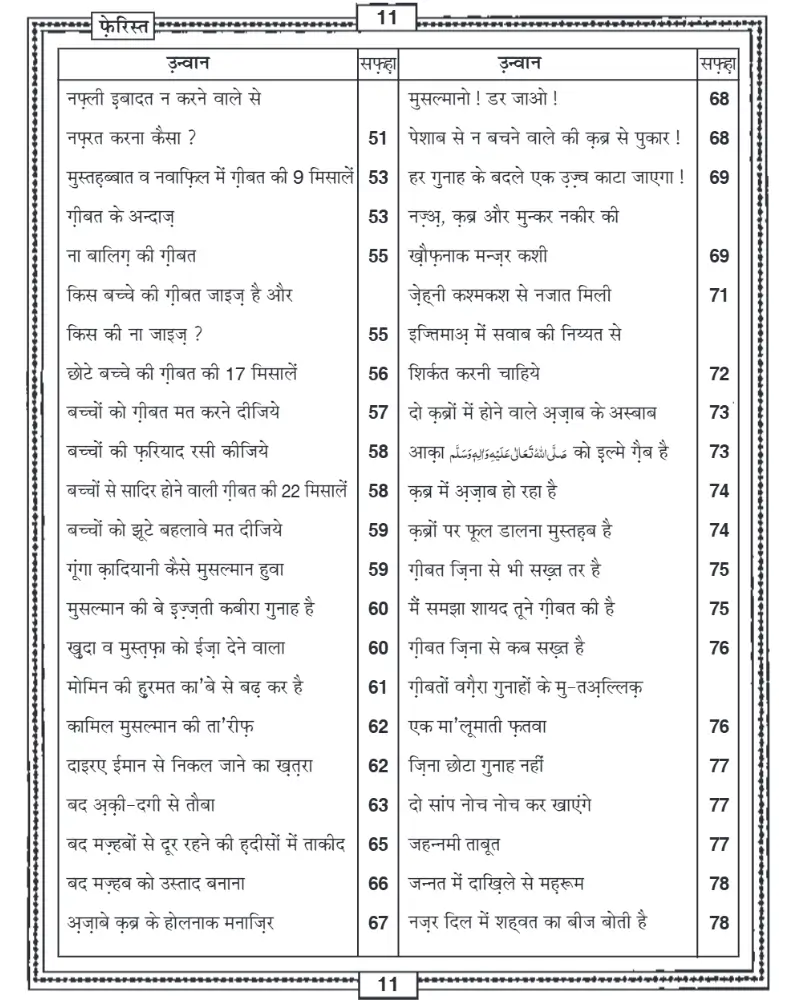 11
फ़ेरिस्त
उ़न्वान सफ़ह़ा
नफ़्ली इ़बादत न करने वाले से
नफ़रत करना कैसा ? 51
मुस्तह़ब्बात व नवाफ़िल में ग़ीबत की 9 मिसालें 53
ग़ीबत के अन्दाज़ 53
ना बालिग़ की ग़ीबत 55
किस बच्चे की ग़ीबत जाइज़ है और
किस की ना जाइज़ ? 55
छोटे बच्चे की ग़ीबत की 17 मिसालें 56
बच्चों को ग़ीबत मत करने दीजिये 57
बच्चों की फ़रियाद रसी कीजिये 58
बच्चों से सादिर होने वाली ग़ीबत की 22 मिसालें 58
बच्चों को झूटे बहलावे मत दीजिये 59
गूंगा क़ादियानी कैसे मुसल्मान हुवा 59
मुसल्मान की बे इ़ज़्ज़ती कबीरा गुनाह है 60
ख़ुदा व मुस्त़फ़ा को ईज़ा देने वाला 60
मोमिन की ह़ुरमत का'बे से बढ़ कर है 61
कामिल मुसल्मान की ता'रीफ़ 62
दाइरए ईमान से निकल जाने का ख़त़रा 62
बद अ़क़ी-दगी से तौबा 63
बद मज़्हबों से दूर रहने की ह़दीसों में ताकीद 65
बद मज़्हब को उस्ताद बनाना 66
अ़ज़ाबे क़ब्र के होलनाक मनाज़िर 67
उ़न्वान सफ़ह़ा
मुसल्मानो ! डर जाओ ! 68
पेशाब से न बचने वाले की क़ब्र से पुकार ! 68
हर गुनाह के बदले एक उ़ज़्व काटा जाएगा ! 69
नज़्अ़, क़ब्र और मुन्कर नकीर की
ख़ौफ़नाक मन्ज़र कशी 69
ज़ेह्नी कश्मकश से नजात मिली 71
इज्तिमाअ़ में सवाब की निय्यत से
शिर्कत करनी चाहिये 72
दो क़ब्रों में होने वाले अ़ज़ाब के अस्बाब 73
आक़ा صَلَّى اللهُ تَعَالٰى عَلَيْهِ وَاٰلِهٖ وَسَلَّم को इ़ल्मे ग़ैब है 73
क़ब्र में अ़ज़ाब हो रहा है 74
क़ब्रों पर फूल डालना मुस्तह़ब है 74
ग़ीबत ज़िना से भी सख़्त तर है 75
मैं समझा शायद तूने ग़ीबत की है 75
ग़ीबत ज़िना से कब सख़्त है 76
ग़ीबतों वग़ैरा गुनाहों के मु-तअ़ल्लिक़
एक मा'लूमाती फ़तवा 76
ज़िना छोटा गुनाह नहीं 77
दो सांप नोच नोच कर खाएंगे 77
जहन्नमी ताबूत 77
जन्नत में दाख़िले से मह़रूम 78
नज़र दिल में शह्वत का बीज बोती है 78
11